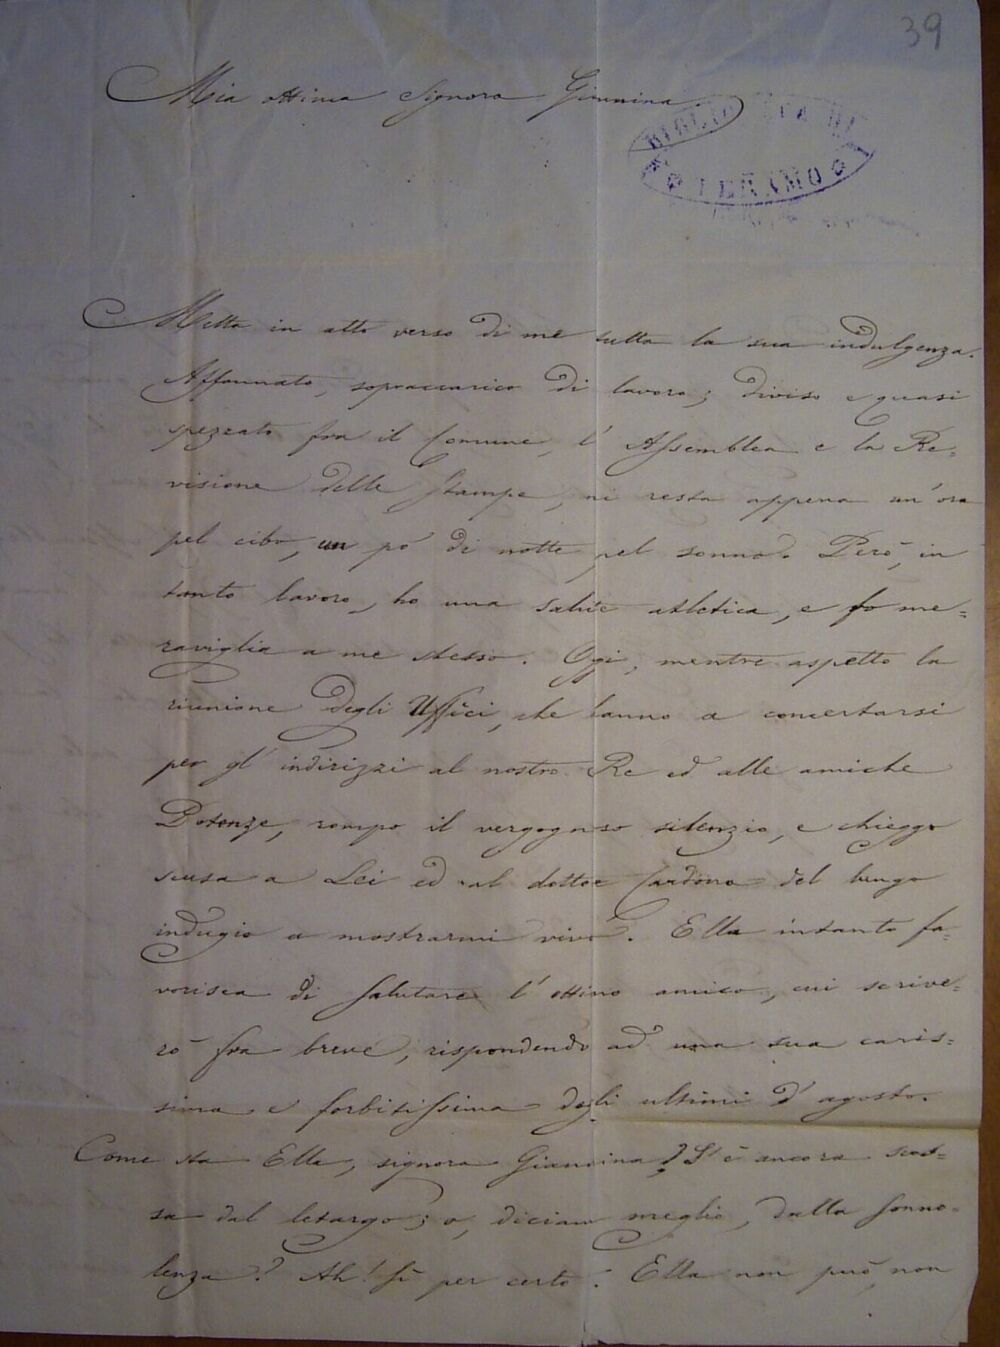 39
Mia ottima Signora Giannina.
BIBLIOTECA DI
TERAMO
Metta in atto verso di me tutta la sua indulgenza.
Affannato, sopraccarico di lavoro; diviso e quasi
spezzato fra il Comune, l'Assemblea e la Re=
visione delle Stampe, mi resta appena un'ora
pel cibo, un pò di notte pel sonno. Però, in
tanto lavoro, ho una salute atletica, e fo me=
raviglia a me stesso. Oggi, mentre aspetto la
riunione degli Uffici, che hanno a concertarsi
per gl'indirizzi al nostro Re ed alle amiche
Potenze, rompo il vergognoso silenzio, e chieggo
scusa a Lei ed al dottor Cardona del lungo
indugio a mostrarmi vivo. Ella intanto fa=
vorisca di salutare l'ottimo amico, cui scrive=
rò fra breve, rispondendo ad una sua caris=
sima e forbitissima degli ultimi d'agosto.
Come sta Ella, signora Giannina? S'è ancora scos=
sa dal letargo; o, diciam meglio, dalla sonno=
lenza? Ah! sì per certo. Ella non può, non